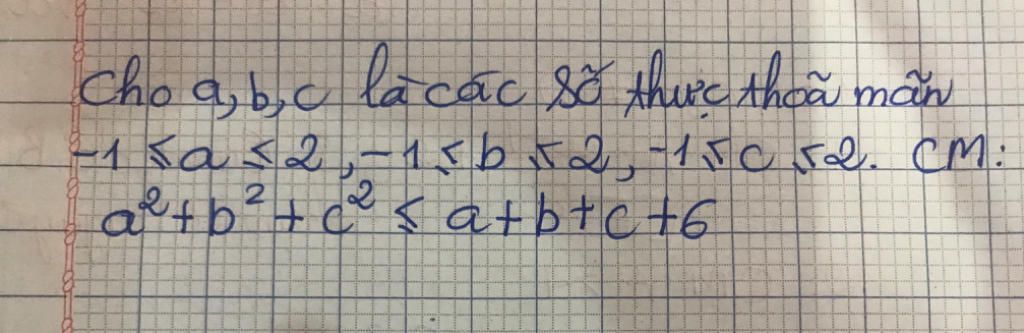 Cho a, b, c là các số thực thoã mãn
-1 ≤ a ≤ 2, -1 ≤ b ≤ 2, -1 ≤ c ≤ 2. CM:
a² + b² + c² ≤ a + b + c + 6